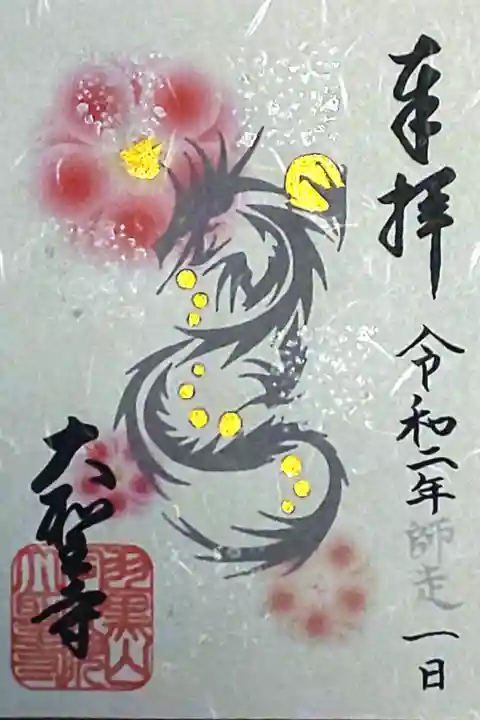 奉拝
令和二年師走一日
大聖寺